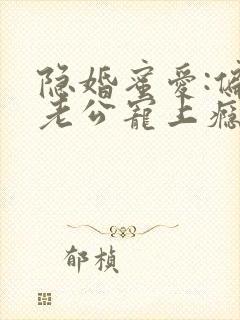 隐婚蜜爱:偏
老公宠上瘾
郁桢